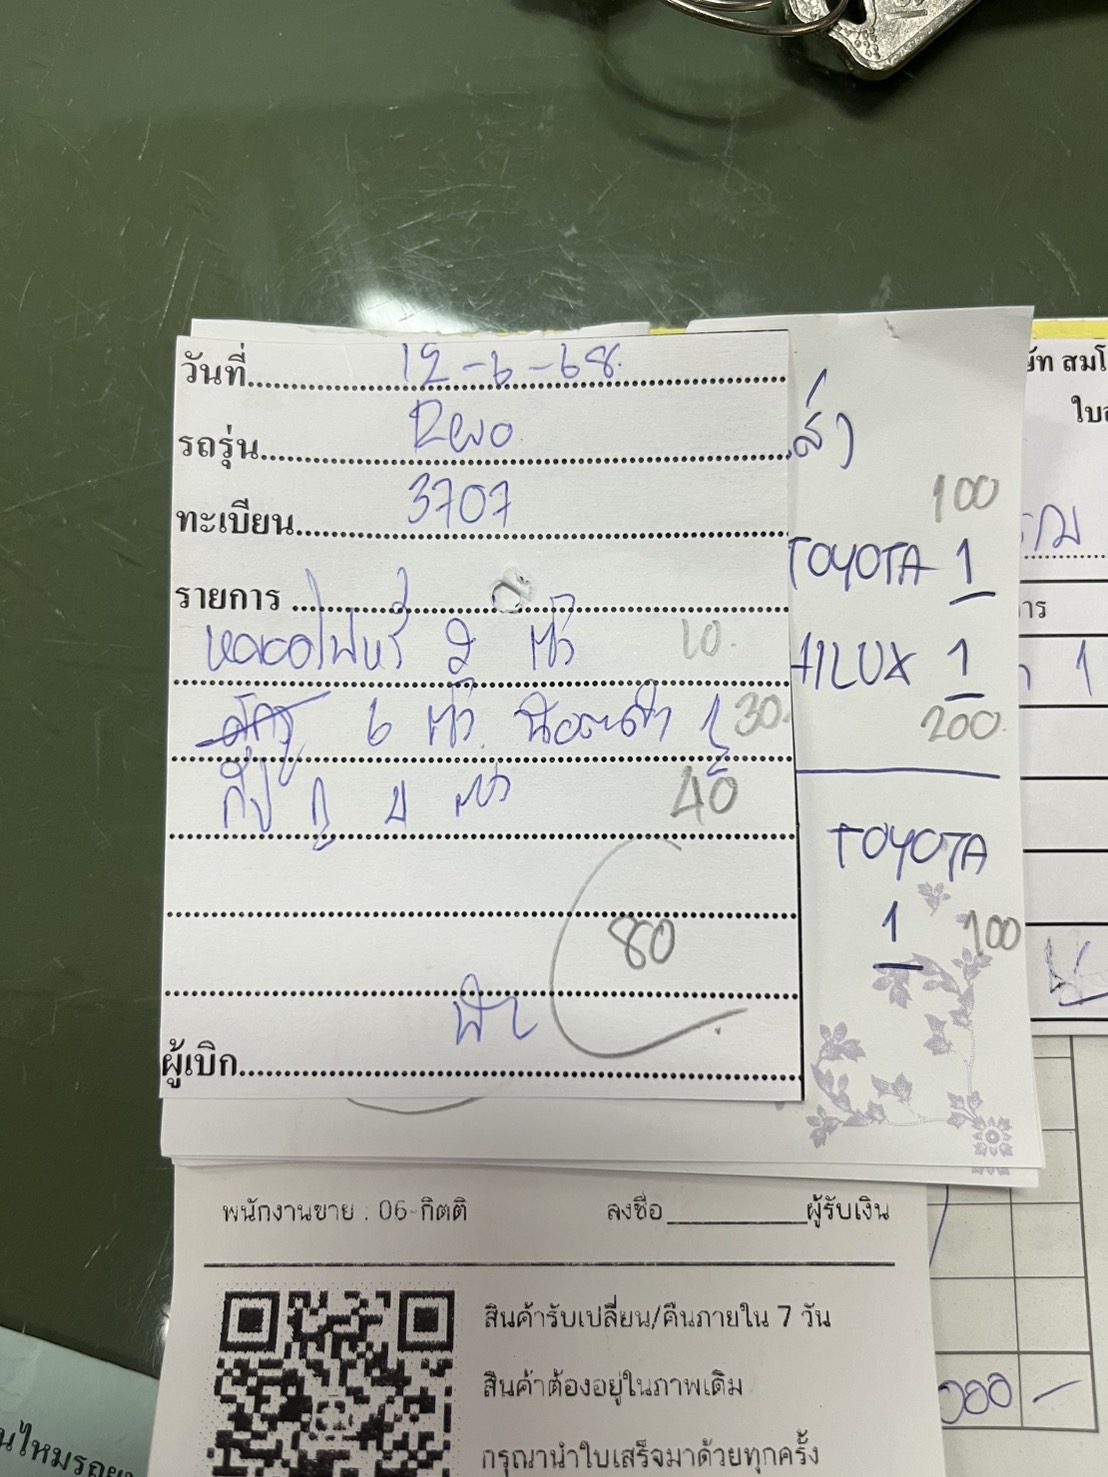 วันที่ 12-6-68
รถรุ่น Revo
ทะเบียน 3707
รายการ
หลอดไฟหรี่ 2 ตัว 10
6 ตัว น๊อตดำ 30
กิ๊ป 4 ตัว 40
80
ผู้เบิก
ส่ง
100
TOYOTA 1
HILUX 1
200
TOYOTA
1 100
ษัท สมโ
ใบส
าร
1
พนักงานขาย : 06-กิตติ ลงชื่อ ผู้รับเงิน
สินค้ารับเปลี่ยน/คืนภายใน 7 วัน
สินค้าต้องอยู่ในภาพเดิม
กรุณานำใบเสร็จมาด้วยทุกครั้ง
000 -